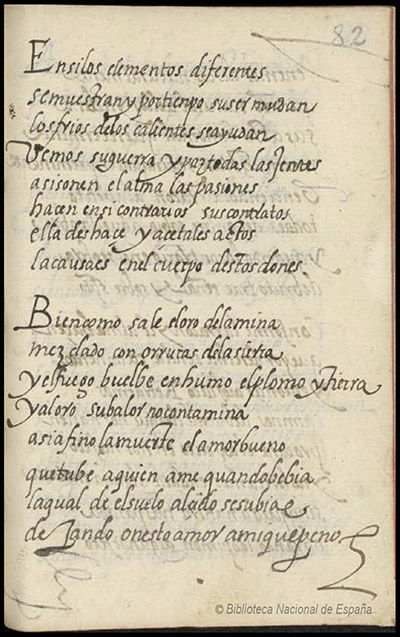 82
En si los elementos diferentes
se muestran y por tienpo su ser mudan
los frios de los calientes se ayudan
Vemos su guerra y paz todas las jentes
asi son en el alma las pasiones
hacen en si contrarios sus contratos
ella deshace y ace tales actos
la causa es en el cuerpo destos dones
Bien como sale el oro de la mina
mezclado con orruras de la sierra
y el fuego buelbe en humo el plomo y tierra
y al oro su balor no contamina
asi afino la muerte el amor bueno
que tube a quien ame quando bebia
la qual de el suelo al cielo se subia
dejando onesto amor a mi que peno
© Biblioteca Nacional de España